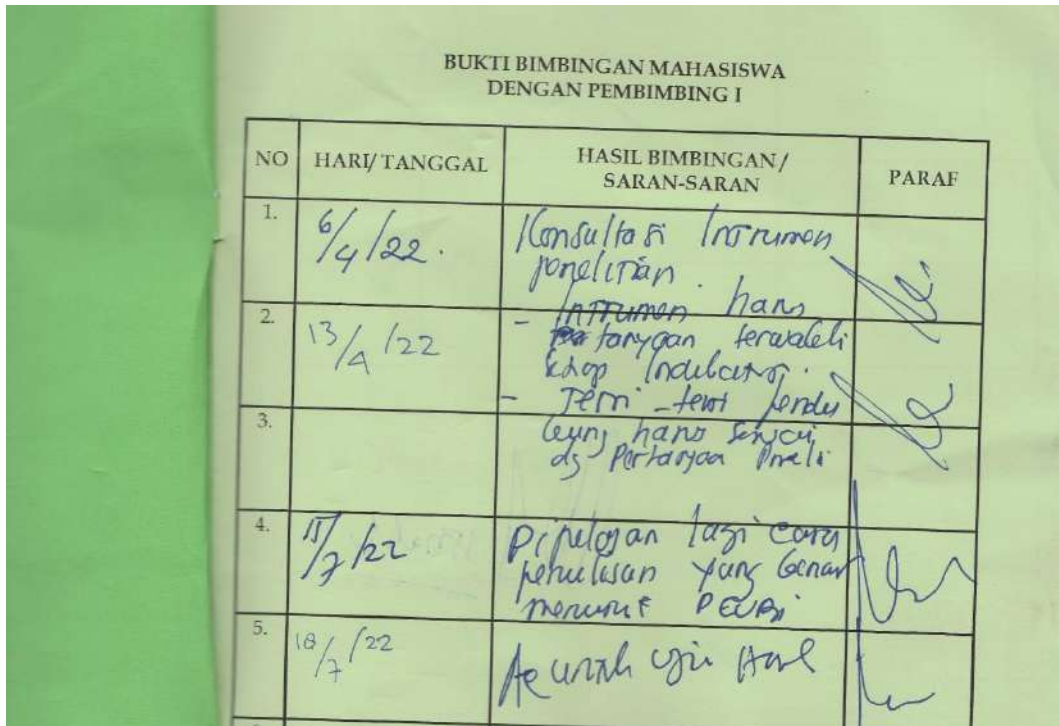 BUKTI BIMBINGAN MAHASISWA
DENGAN PEMBIMBING I
NO HARI/TANGGAL HASIL BIMBINGAN/ SARAN-SARAN PARAF
1. 6/4/22. Konsultasi Instrumen
penelitian.
2. 13/4/22 - Instrumen harus
pertanyaan terwakili
setiap Indikator.
- Teori - teori pendu
kung harus sesuai
3. dg Pertanyaan Peneli
4. 15/7/22 Dipelajari lagi cara
penulisan yang benar
menurut PEUBI
5. 18/7/22 Acc untuk ujian Hasil